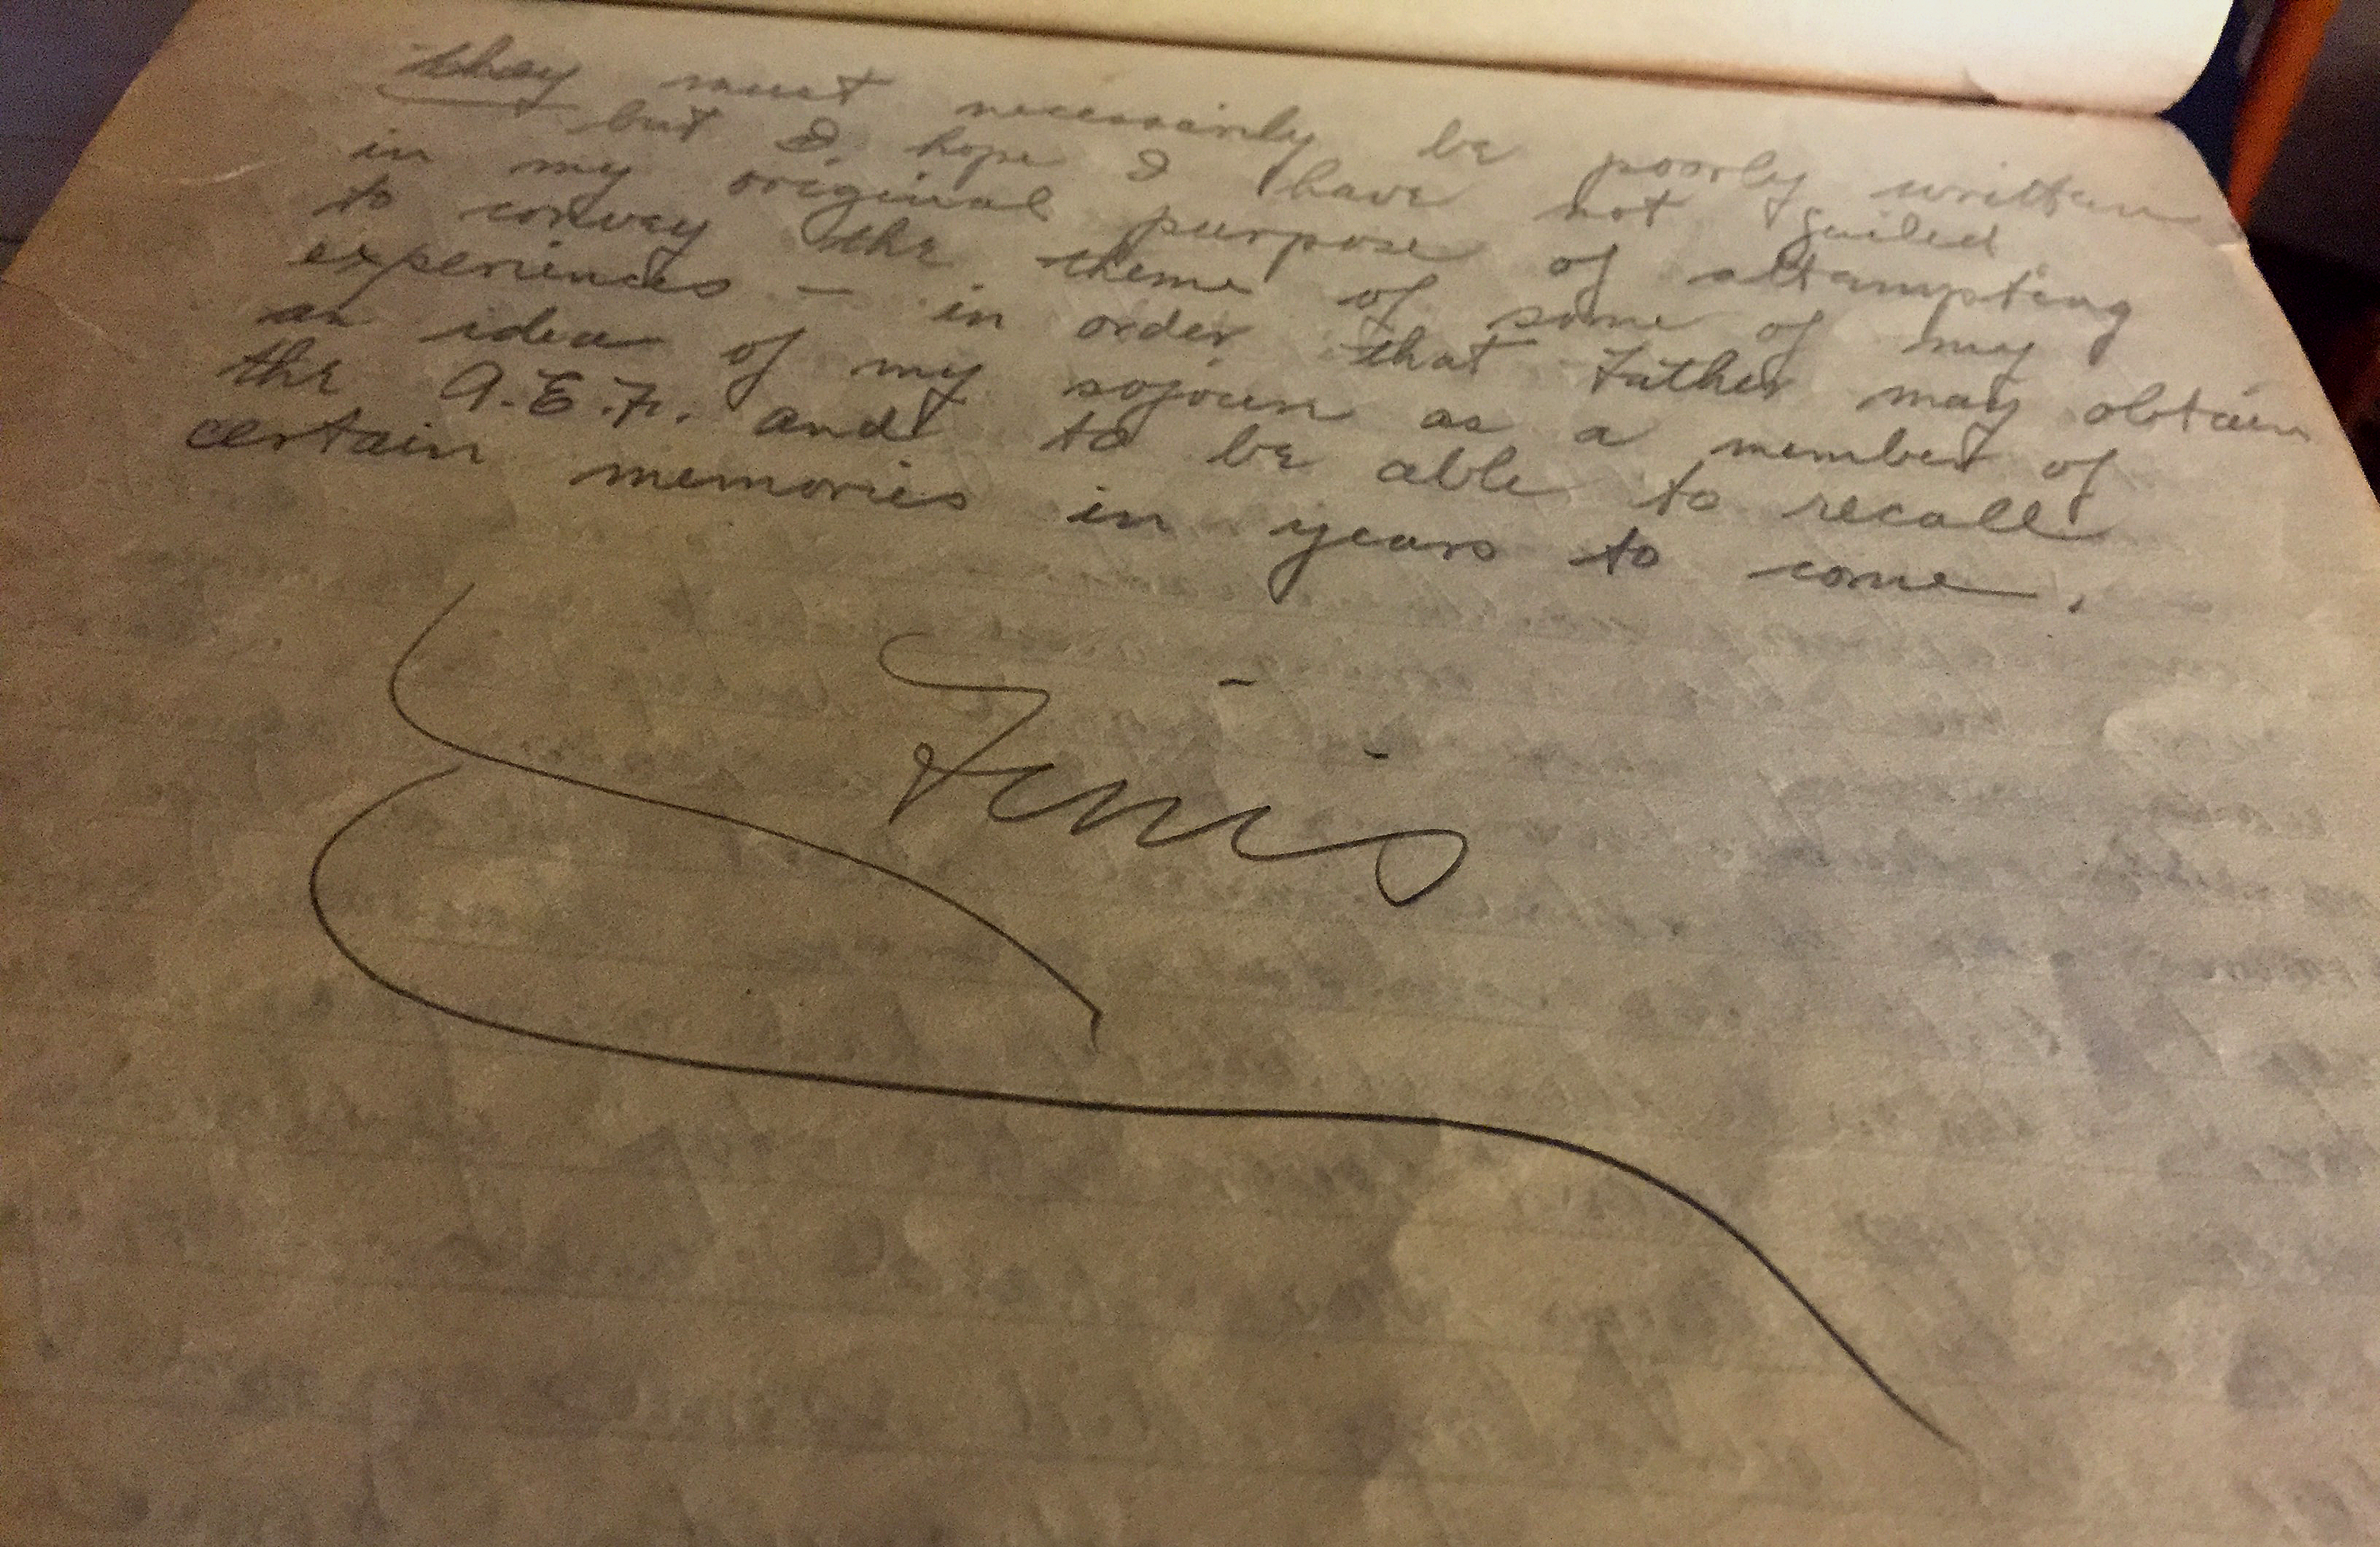 they must necessarily be poorly written
— but I hope I have not failed
in my original purpose of attempting
to convey the theme of some of my
experiences — in order that Father may obtain
an idea of my sojourn as a member of
the A.E.F. and to be able to recall
certain memories in years to come.
Finis